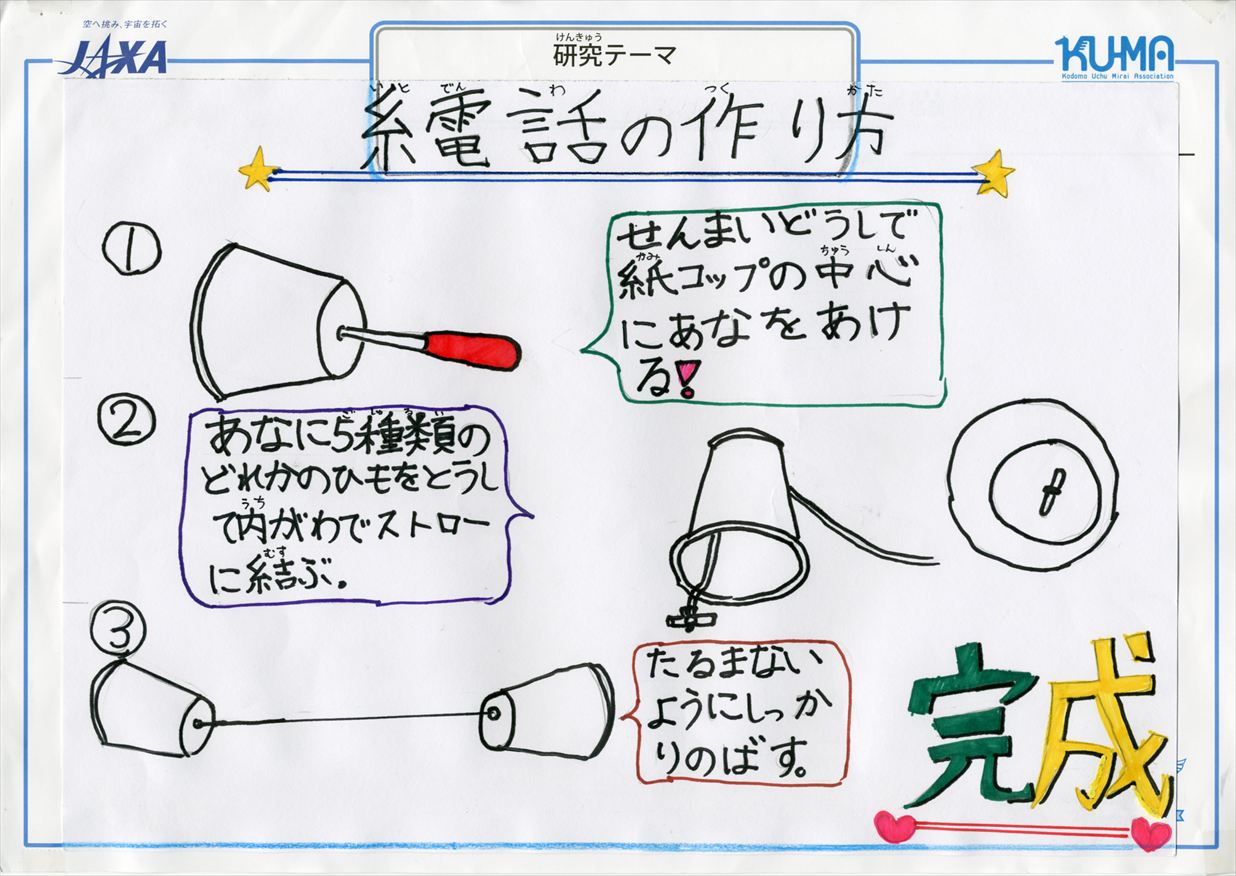 空へ挑み、宇宙を拓く
JAXA
けんきゅう
研究テーマ
KU-MA
Kodomo Uchu Mirai Association
いと でん わ つく かた
糸電話の作り方
①
せんまいどうしで
かみ ちゅう しん
紙コップの中心
にあなをあけ
る!
②
ご しゅ るい
あなに5種類の
どれかのひもをとうし
うち
て内がわでストロー
むす
に結ぶ。
③
たるまない
ようにしっか
りのばす。
完成